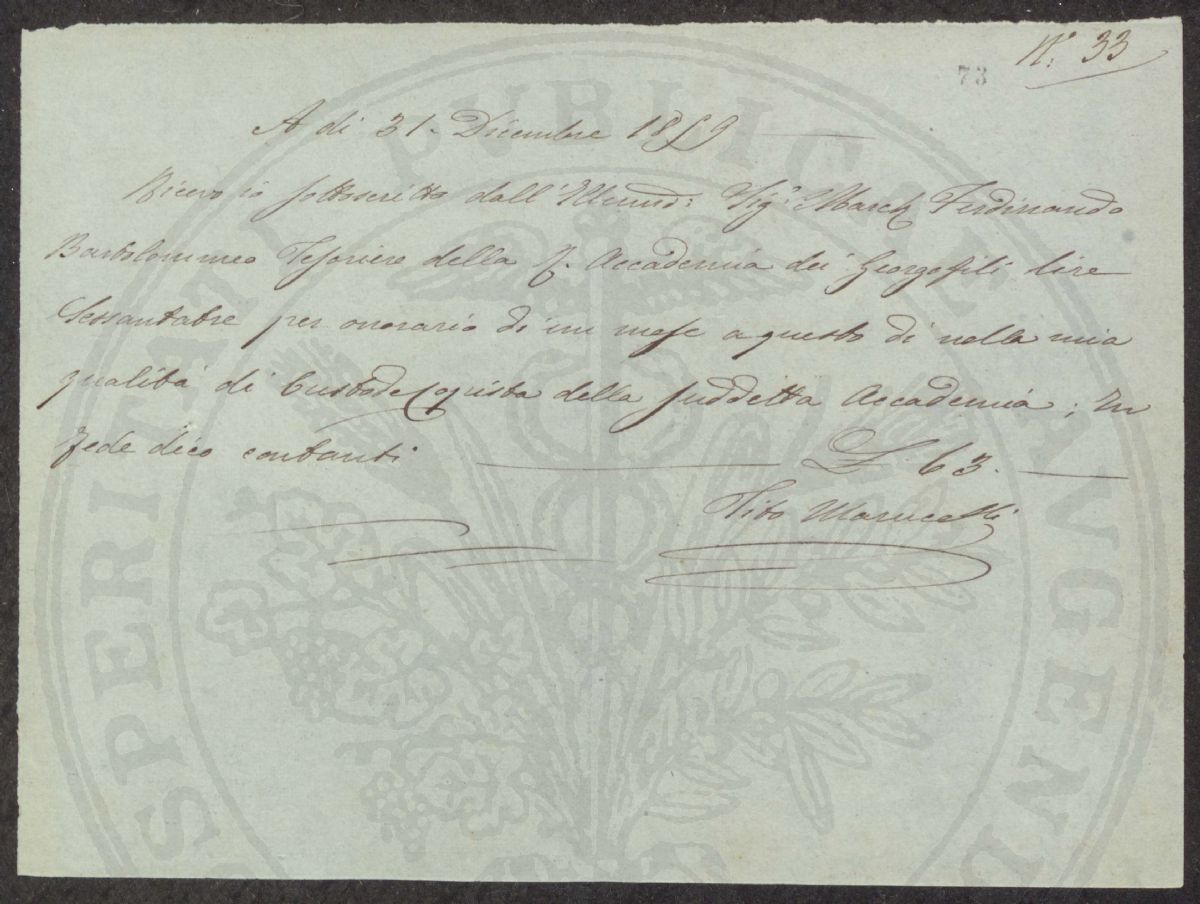 N.° 33
73
A di 31. Dicembre 1859
Ricevo io sottoscritto dall' Illmo: Sig.r March Ferdinando
Bartolommeo Tesoriere della R. Accademia dei Georgofili lire
Sessantatre per onorario di un mese a questo dì nella mia
qualità di Custode Copista della suddetta Accademia; In
fede dico contanti L 63.
Tito Marucelli
PROSPERITATI PUBLICAE AUGENDAE